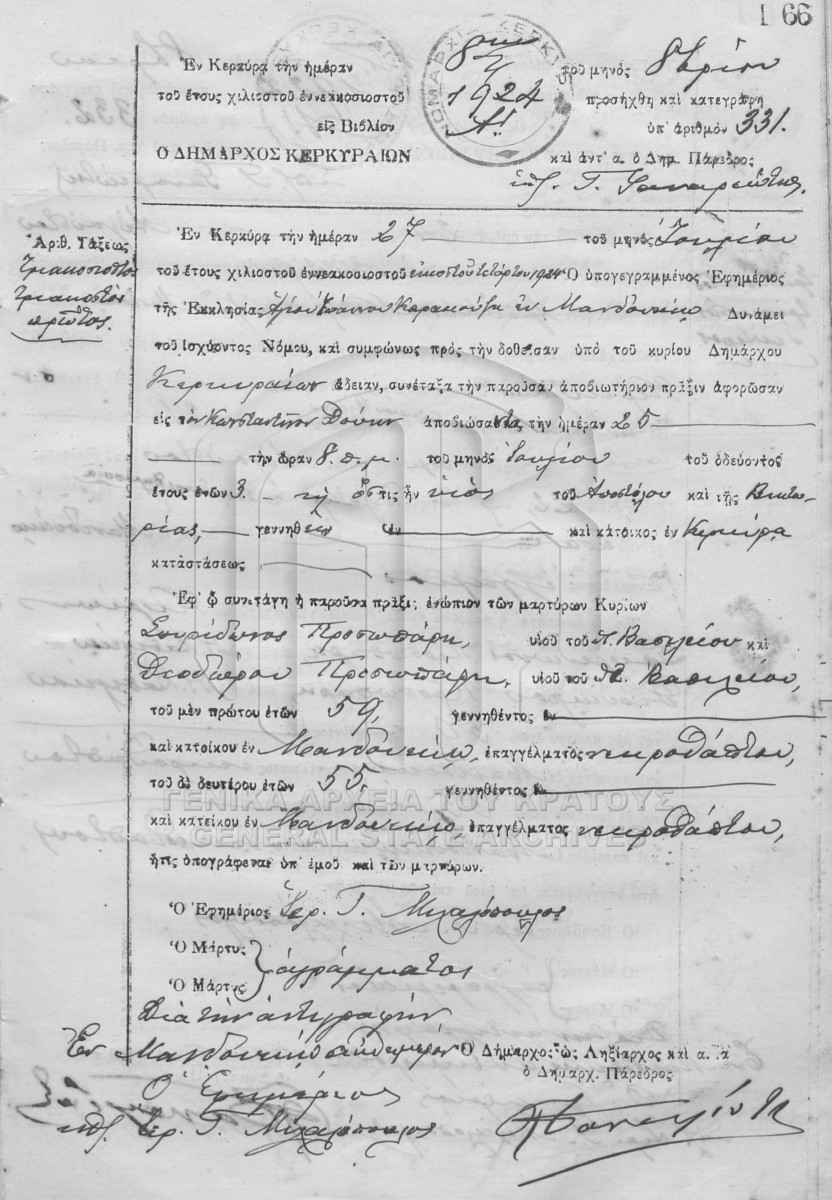 1 66
Ἐν Κερκύρᾳ τὴν ἡμέραν 8 τοῦ μηνὸς 8βρίου
τοῦ ἔτους χιλιοστοῦ ἐννεακοσιοστοῦ 1924 προσήχθη καὶ κατεγράφη
εἰς Βιβλίον Α! ὑπ' ἀριθμὸν 331.
Ο ΔΗΜΑΡΧΟΣ ΚΕΡΚΥΡΑΙΩΝ καὶ ἀντ' α. ὁ Δημ. Πάρεδρος
Ἀριθ. Τάξεως
τριακοσιοστὸς
τριακοστὸς
πρῶτος.
Ἐν Κερκύρᾳ τὴν ἡμέραν 27 τοῦ μηνὸς Ἰουλίου
τοῦ ἔτους χιλιοστοῦ ἐννεακοσιοστοῦ εἰκοστοῦ τετάρτου 1924 Ὁ ὑπογεγραμμένος Ἐφημέριος
τῆς Ἐκκλησίας Ἁγίου Ἰωάννου ἐν Μανδουκίῳ Δυνάμει
τοῦ ἰσχύοντος Νόμου, καὶ συμφώνως πρὸς τὴν δοθεῖσαν ὑπὸ τοῦ κυρίου Δημάρχου
Κερκυραίων ἄδειαν, συνέταξα τὴν παροῦσαν ἀποβιωτήριον πρᾶξιν ἀφορῶσαν
εἰς τὸν Κωνσταντῖνον ἀποβιώσαντα, τὴν ἡμέραν 25
τὴν ὥραν 8. π.μ. τοῦ μηνὸς Ἰουλίου τοῦ ὁδεύοντος
ἔτους ἐτῶν 3. ὅστις ἦν υἱὸς τοῦ Ἀποστόλου καὶ τῆς Βικτω-
ρίας, γεννηθεὶς ἐν καὶ κάτοικος ἐν Κερκύρᾳ
καταστάσεως
Ἐφ' ᾧ συνετάγη ἡ παροῦσα πρᾶξις ἐνώπιον τῶν μαρτύρων Κυρίων
Σπυρίδωνος Προσωπάρη, υἱοῦ τοῦ Π. Βασιλείου καὶ
Θεοδώρου Προσωπάρη, υἱοῦ τοῦ Π. Βασιλείου,
τοῦ μὲν πρώτου ἐτῶν 59, γεννηθέντος ἐν
καὶ κατοίκου ἐν Μανδουκίῳ, ἐπαγγέλματος νεκροθάπτου,
τοῦ δὲ δευτέρου ἐτῶν 55, γεννηθέντος ἐν
ΓΕΝΙΚΑ ΑΡΧΕΙΑ ΤΟΥ ΚΡΑΤΟΥΣ
καὶ κατοίκου ἐν Μανδουκίῳ, ἐπαγγέλματος νεκροθάπτου,
GENERAL STATE ARCHIVES
ἥτις ὑπογράφεται ὑπ' ἐμοῦ καὶ τῶν μαρτύρων.
Ὁ Ἐφημέριος Ἱερ. Γ. Μιχαλόπουλος
Ὁ Μάρτυς
Ὁ Μάρτυς ἀγράμματος
Διὰ τὴν ἀντιγραφὴν
Ἐν Μανδουκίῳ αὐθημερόν Ὁ Δήμαρχος ὡς Ληξίαρχος καὶ α. α
ὁ Δημαρχ. Πάρεδρος
Ὁ Ἐφημέριος
ὑπ. Ἱερ. Γ. Μιχαλόπουλος